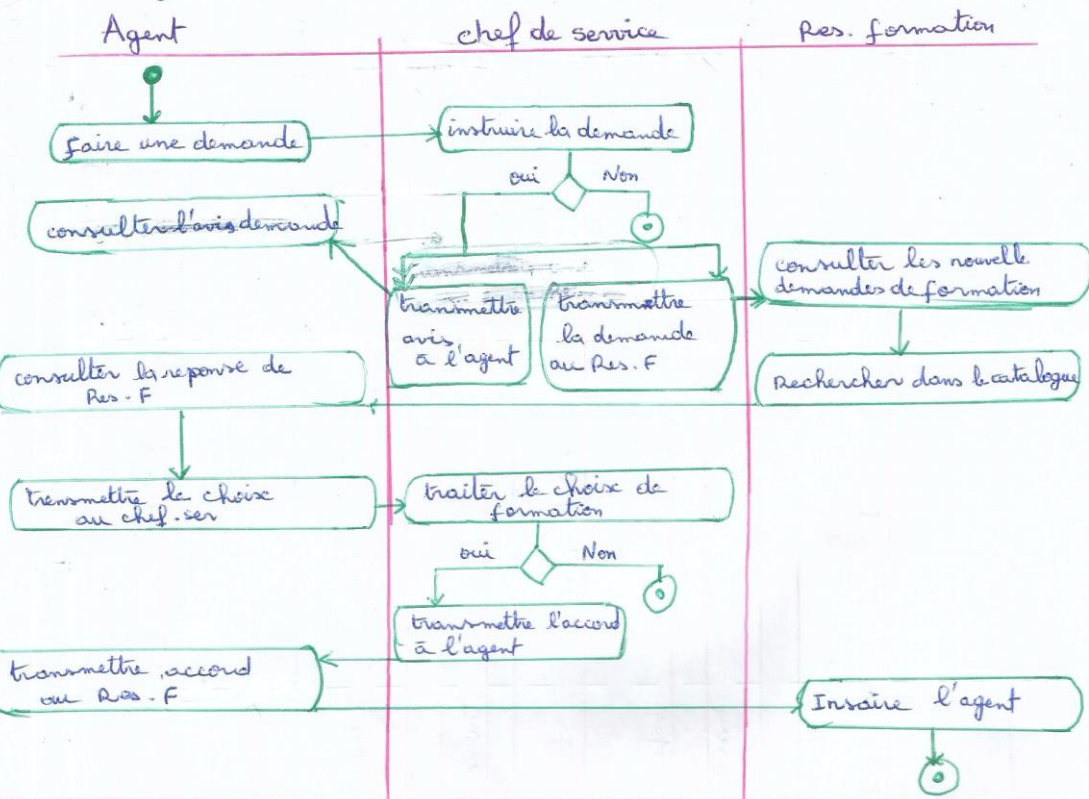 Agent
chef de service
Res. formation
faire une demande
instruire la demande
oui
Non
consulter l'avis demande
transmettre
avis
à l'agent
transmettre
la demande
au Res. F
consulter les nouvelle
demandes de formation
Rechercher dans le catalogue
consulter la reponse de
Res. F
transmettre le choix
au chef.ser
traiter le choix de
formation
oui
Non
transmettre l'accord
à l'agent
transmettre accord
au Res. F
Inscire l'agent